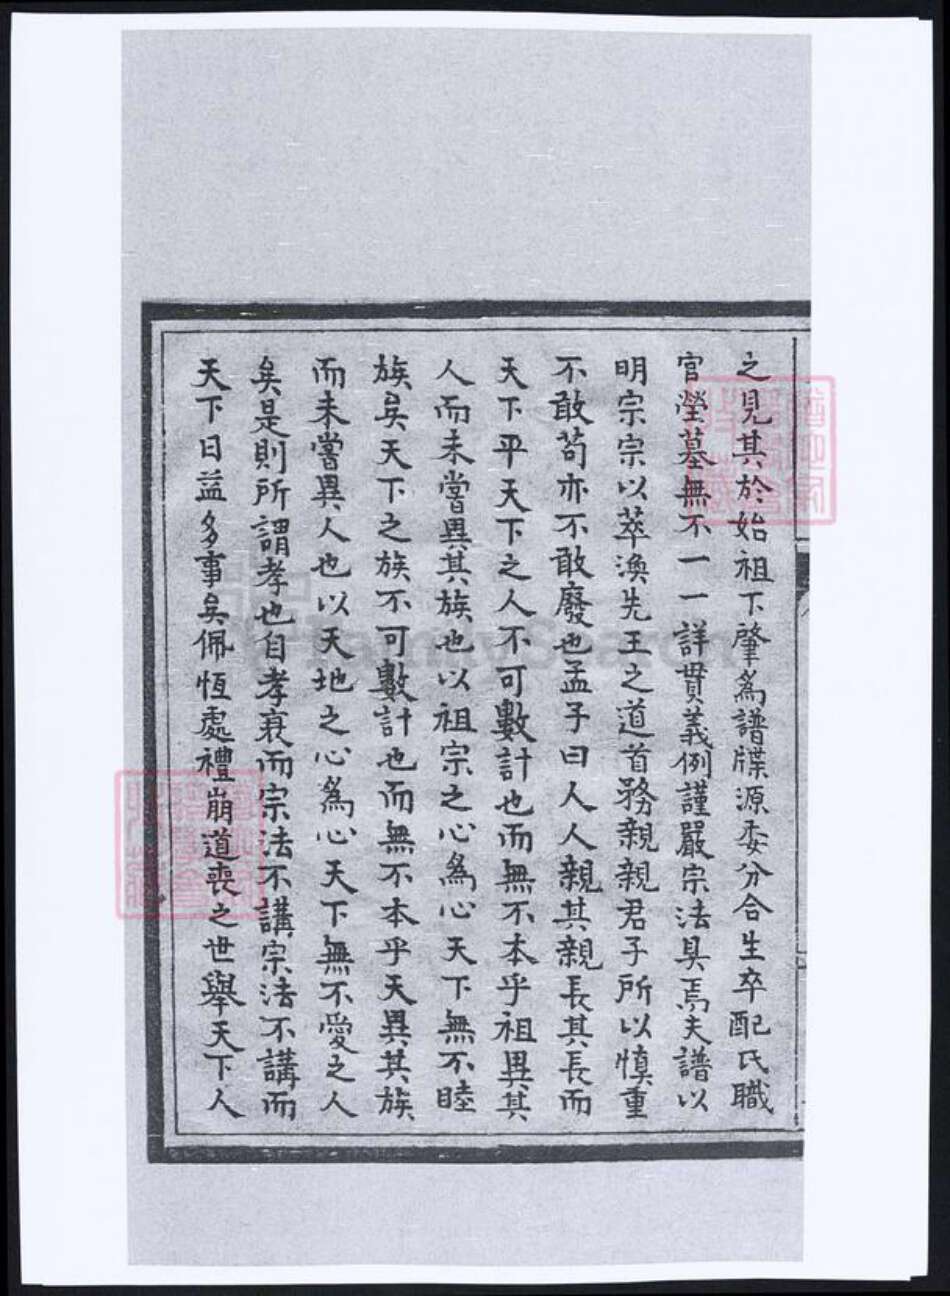 之見其於始祖下肇為譜牒源委分合生卒配氏職
官瑩墓無不一一詳貫義例謹嚴宗法具焉夫譜以
明宗宗以萃渙先王之道首務親親君子所以慎重
不敢苟亦不敢廢也孟子曰人人親其親長其長而
天下平天下之人不可數計也而無不本乎祖異其
人而未嘗異其族也以祖宗之心為心天下無不睦
族矣天下之族不可數計也而無不本乎天異其族
而未嘗異人也以天地之心為心天下無不愛之人
矣是則所謂孝也自孝衰而宗法不講宗法不講而
天下日益多事矣佩恆處禮崩道喪之世舉天下人
FamilySearch